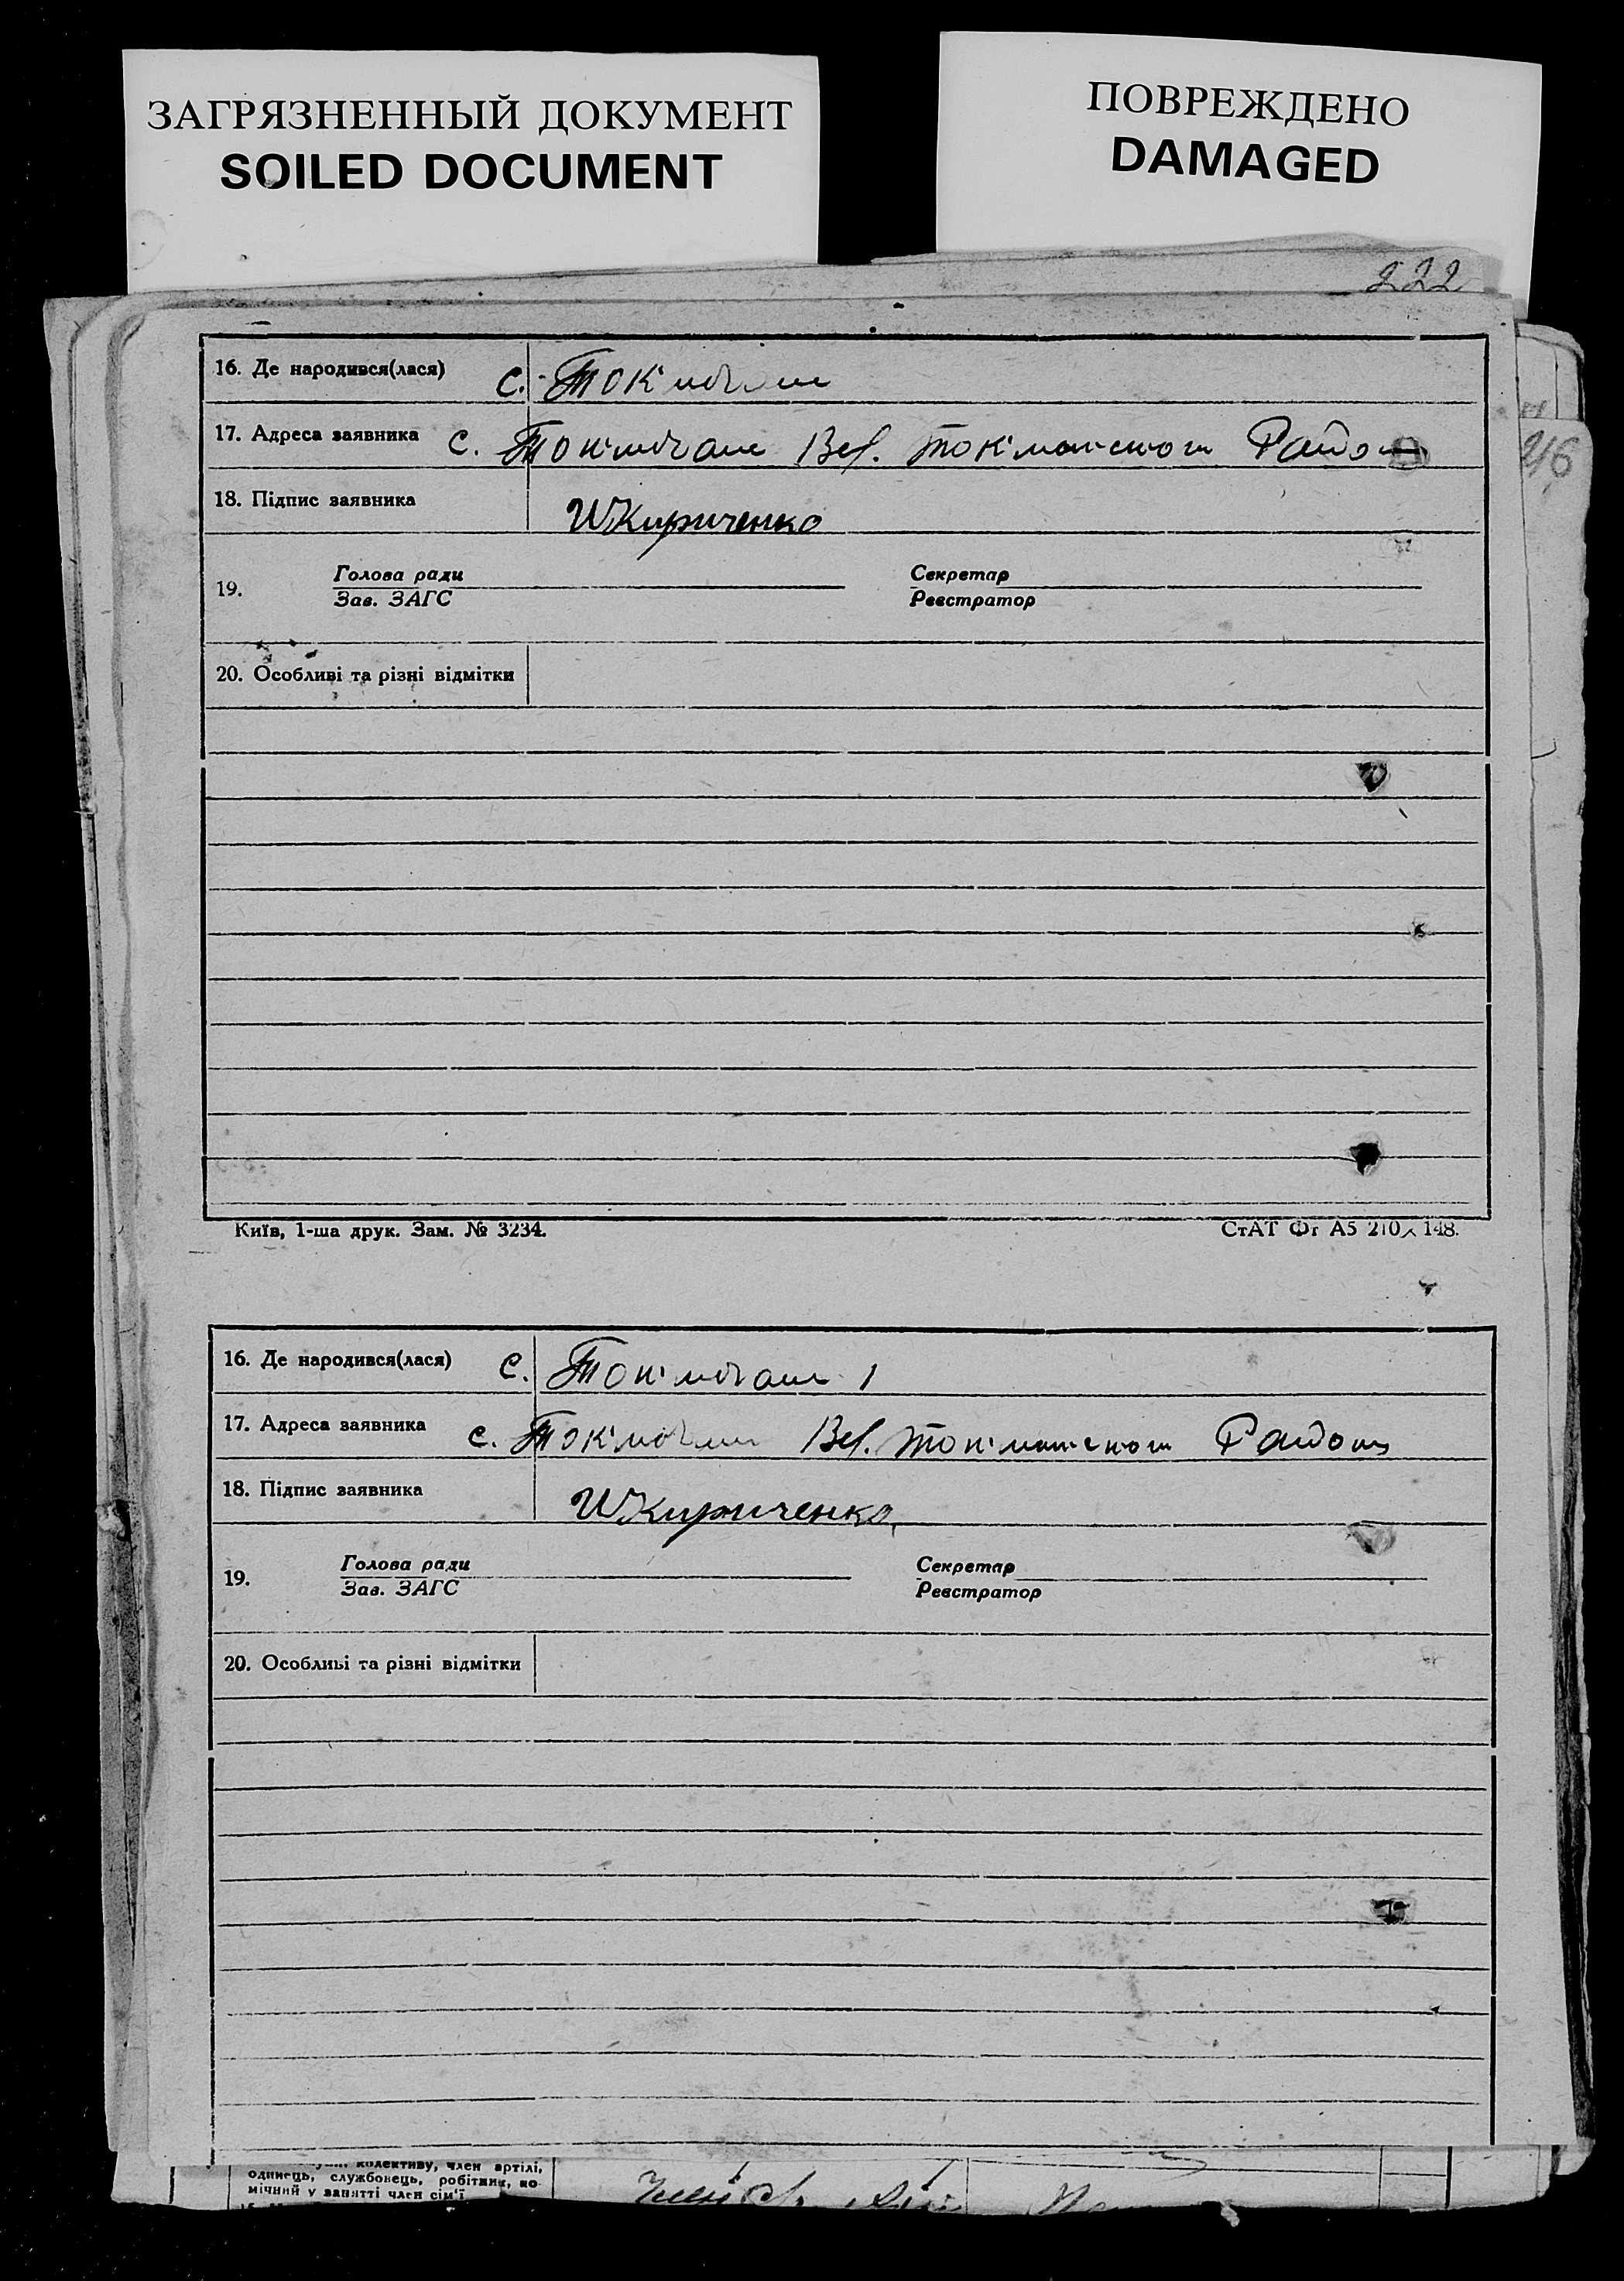 ЗАГРЯЗНЕННЫЙ ДОКУМЕНТ
SOILED DOCUMENT
ПОВРЕЖДЕНО
DAMAGED
222
216
16. Де народився(лася) с. Токмачан
17. Адреса заявника с. Токмачан Вел. Токмацького Району
18. Підпис заявника ИКириченко
19. Голова ради Секретар
Зав. ЗАГС Реєстратор
20. Особливі та різні відмітки
Київ, 1-ша друк. Зам. № 3234. СтАТ Фг А5 210×148.
16. Де народився(лася) с. Токмачан
17. Адреса заявника с. Токмачан Вел. Токмацького Району
18. Підпис заявника ИКириченко
19. Голова ради Секретар
Зав. ЗАГС Реєстратор
20. Особливі та різні відмітки
колективу, член артілі,
одинець, службовець, робітник,
мічний у занятті член сім'ї